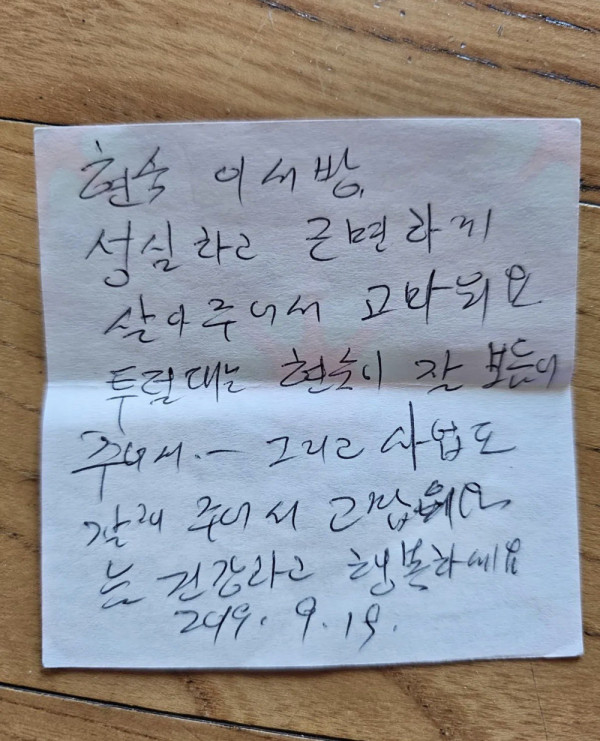 현숙 이서방.
성실하고 근면하게
살아주어서 고마워요
투덜대는 현숙이 잘 보듬어
주어서.— 그리고 사업도
잘해 주어서 고맙
늘 건강하고 행복하세요
2019. 9. 19.